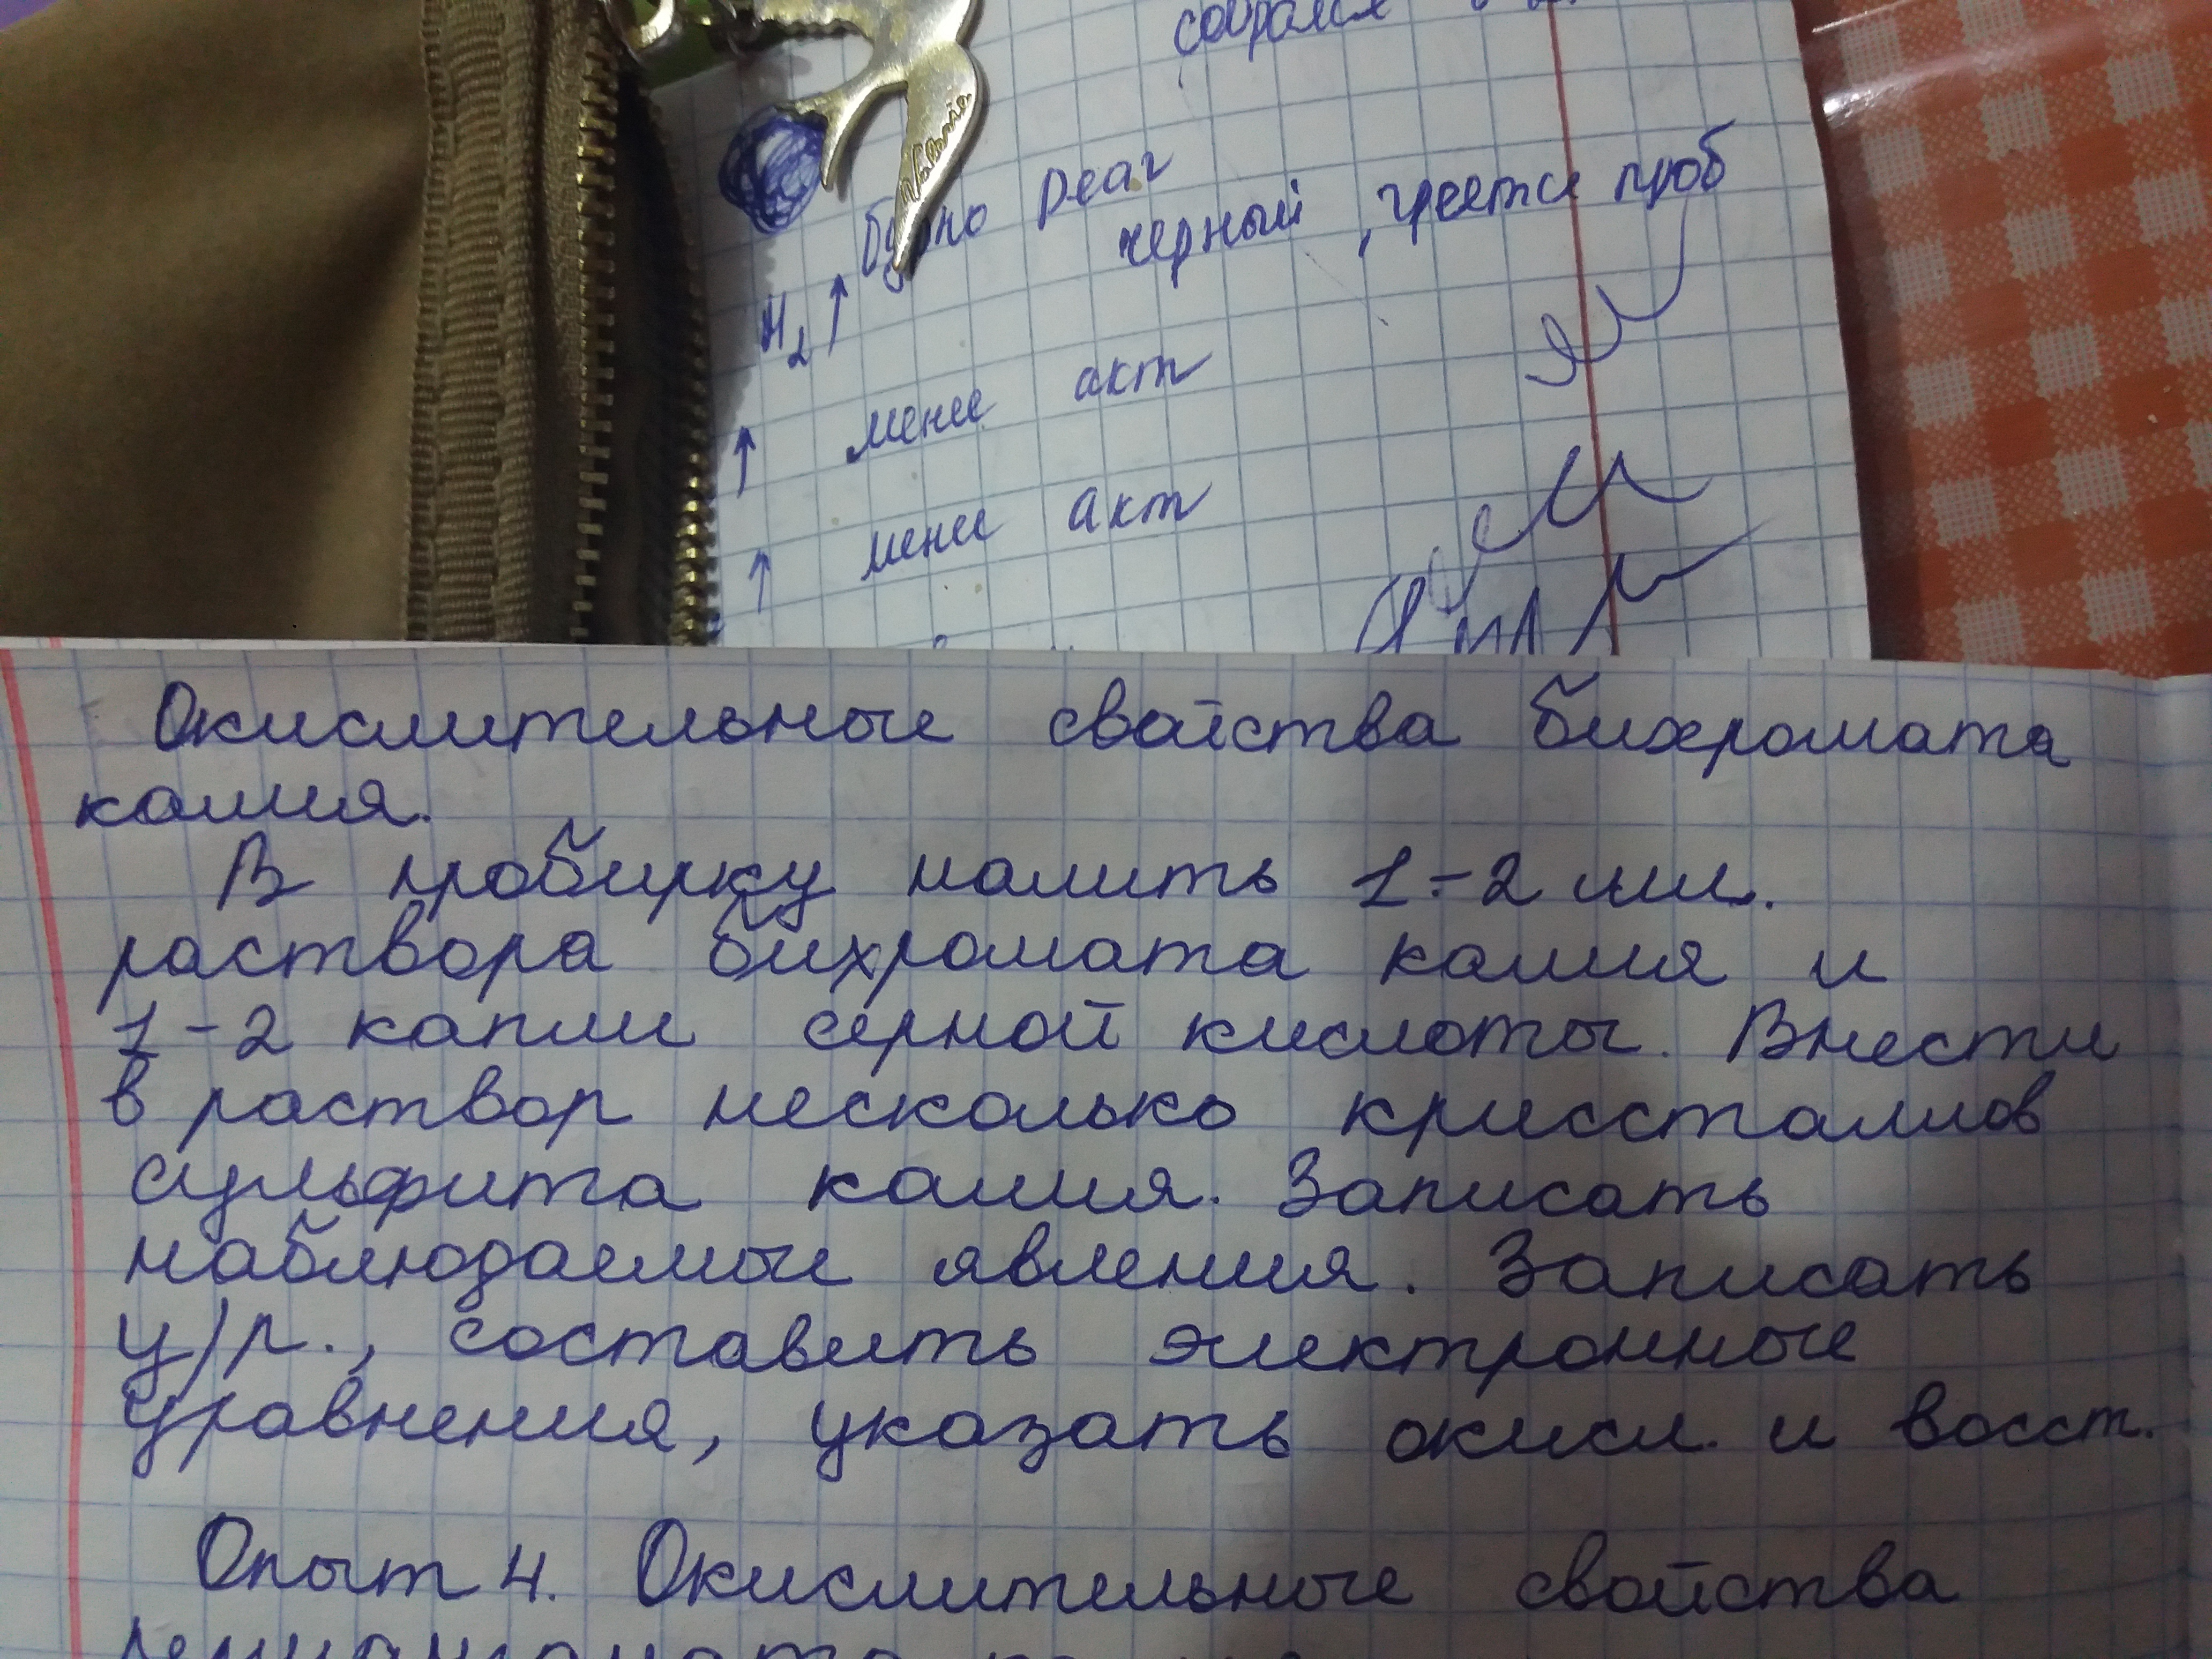 собрался
бурно реаг
черный, греется проб
H₂↑
↑ менее акт
↑ менее акт
Окислительные свойства бихромата
калия.
В пробирку налить 1-2 мл.
раствора бихромата калия и
1-2 капли серной кислоты. Внести
в раствор несколько криссталлов
сульфита калия. Записать
наблюдаемые явления. Записать
у/р., составить электронные
уравнения, указать окисл. и восст.
Опыт 4. Окислительные свойства